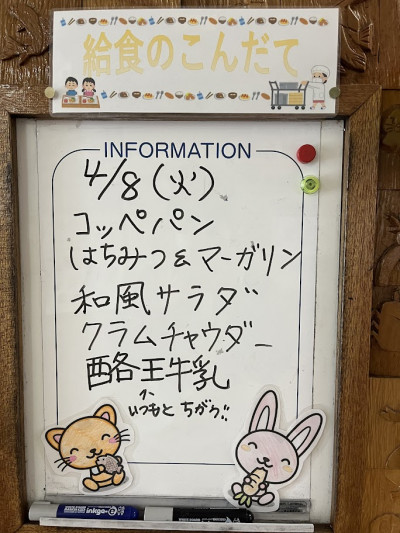 給食のこんだて
INFORMATION
4/8(火)
コッペパン
はちみつ&マーガリン
和風サラダ
クラムチャウダー
酪王牛乳
いつもと ちがう!!
inkga-e